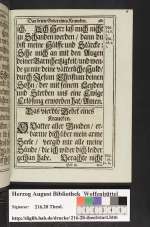 Das fünfte Gebet eines Krancken.
ich. HErr laß mich nicht
zu Schanden werden / dann du
bist meine Hülffe und Stärcke:
Sihe mich an mit den Augen
deiner Barmhertzigkeit / und wen-
de zu mir deine vätterliche Huld /
durch Jesum Christum deinen
Sohn / der mit seinem Leyden
und Sterben uns eine Ewige
Erlösung erworben hat / Amen.
Das vierdte Gebet eines
Krancken.
O Vatter aller Gnaden / er-
barme dich über mein arme
Seele / vergib mir alle meine
Sünde / die ich wider dich leider
gethan habe. Verachte nicht
Herzog August Bibliothek Wolfenbüttel
Signatur: 216.20 Theol.
http://diglib.hab.de/drucke/216-20-theol/start.htm